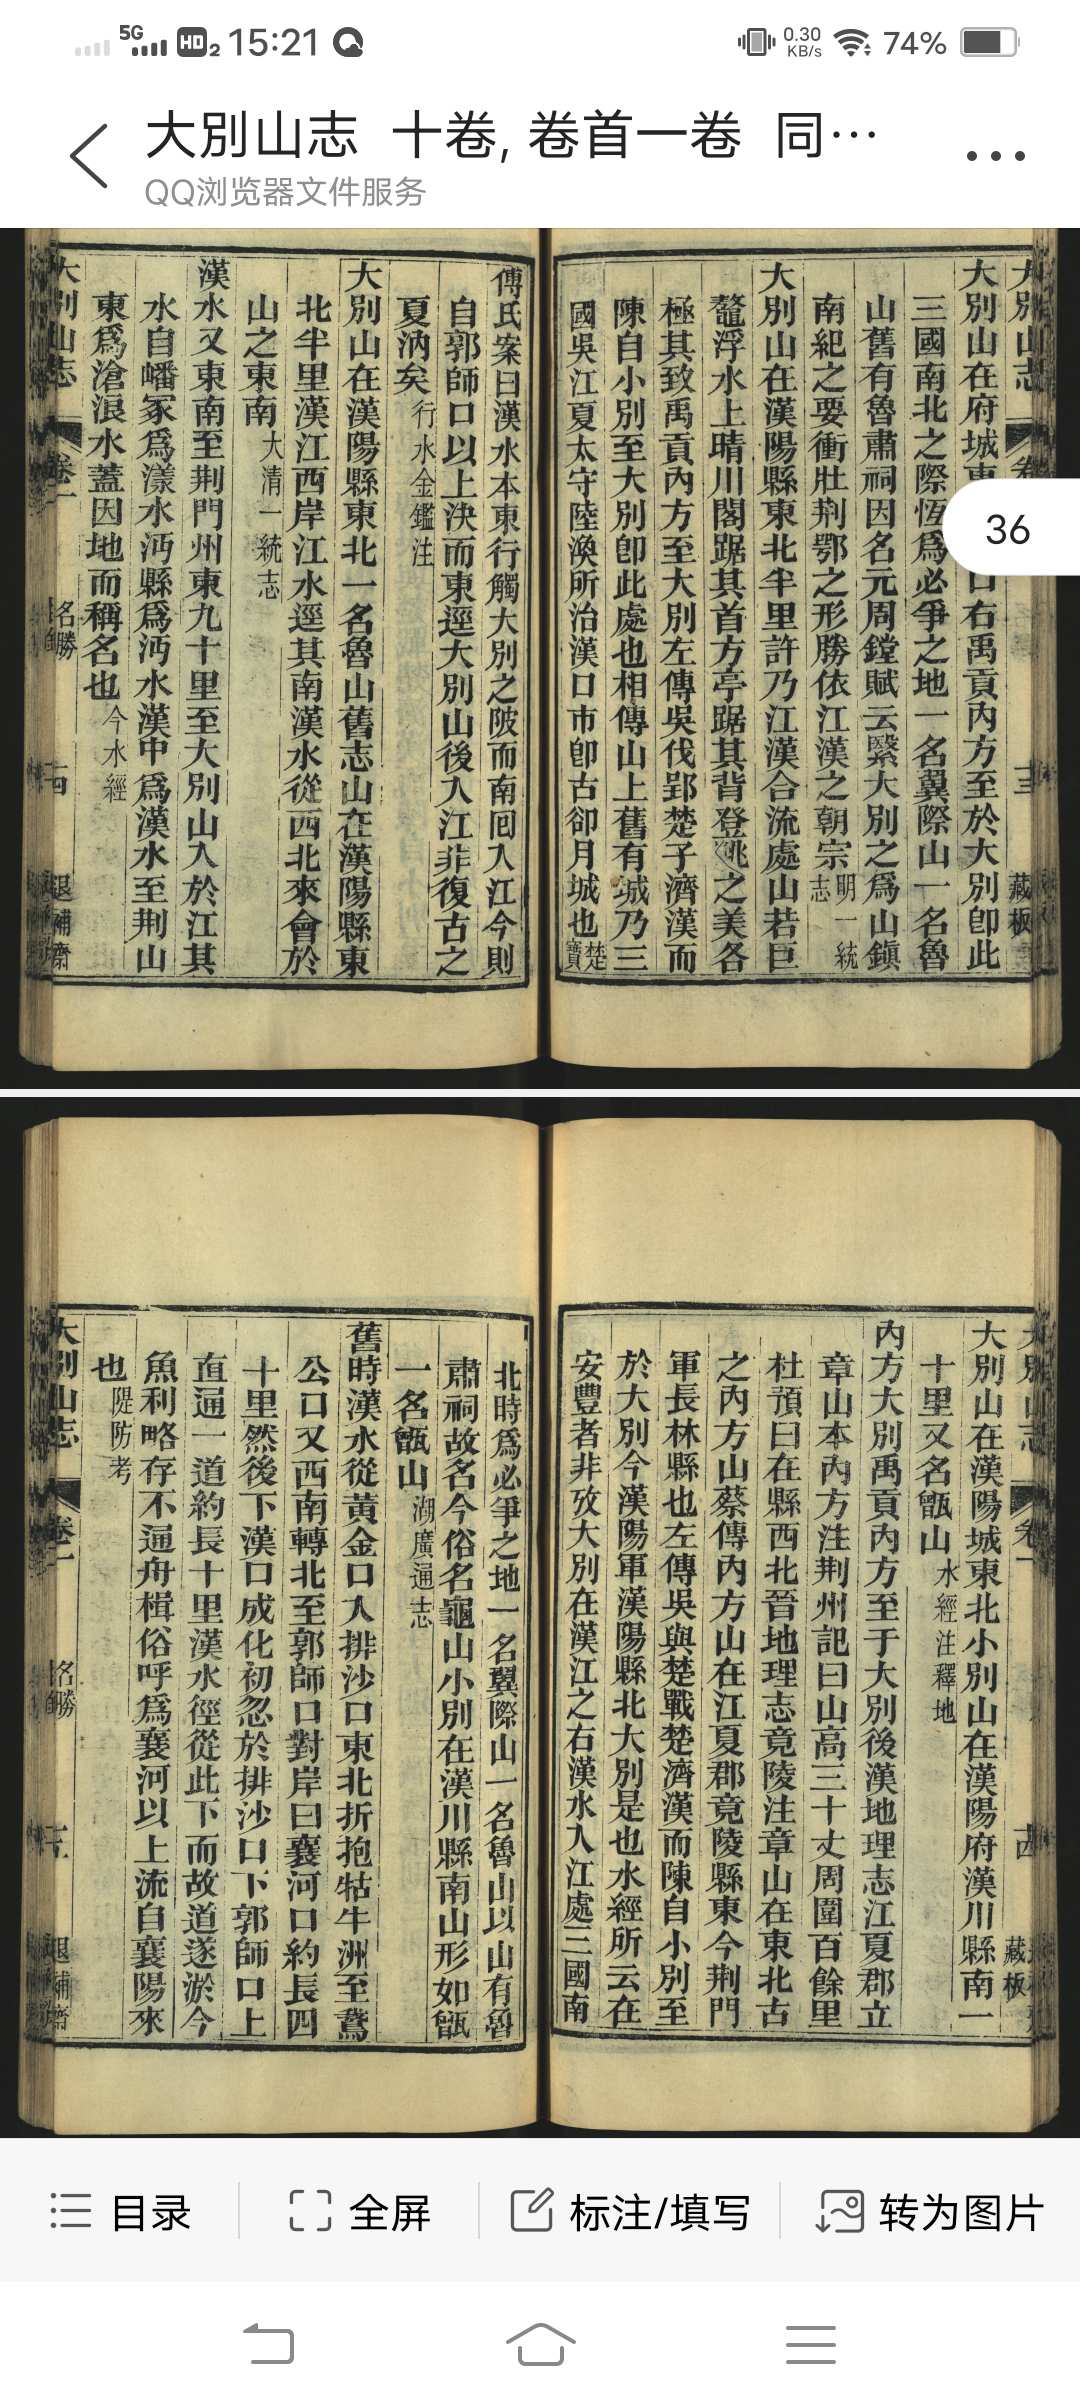 5G HD 2 15:21 0.30 KB/s 74%
大別山志 十卷, 卷首一卷 同…
QQ浏览器文件服务
36
大別山志
藏板
大別山在府城東口右禹貢內方至於大別卽此
三國南北之際恆爲必爭之地一名翼際山一名魯
山舊有魯肅祠因名元周鏜賦云繄大別之爲山鎭
南紀之要衝壯荆鄂之形勝依江漢之朝宗明一統志
大別山在漢陽縣東北半里許乃江漢合流處山若巨
鼇浮水上晴川閣踞其首方亭踞其背登眺之美各
極其致禹貢內方至大別左傳吳伐郢楚子濟漢而
陳自小別至大別卽此處也相傳山上舊有城乃三
國吳江夏太守陸渙所治漢口市卽古卻月城也楚寶
傅氏案曰漢水本東行觸大別之陂而南囘入江今則
自郭師口以上決而東逕大別山後入江非復古之
夏汭矣行水金鑑注
大別山在漢陽縣東北一名魯山舊志山在漢陽縣東
北半里漢江西岸江水逕其南漢水從西北來會於
山之東南大清一統志
漢水又東南至荆門州東九十里至大別山入於江其
水自嶓冢爲漾水沔縣爲沔水漢中爲漢水至荆山
東爲滄浪水蓋因地而稱名也今水經
大別山志 卷一 名勝 十四 退補齋
大別山志 卷一 藏板
大別山在漢陽城東北小別山在漢陽府漢川縣南一
十里又名甑山水經注釋地
內方大別禹貢內方至于大別後漢地理志江夏郡立
章山本內方注荆州記曰山高三十丈周圍百餘里
杜預曰在縣西北晉地理志竟陵注章山在東北古
之內方山蔡傳內方山在江夏郡竟陵縣東今荆門
軍長林縣也左傳吳與楚戰楚濟漢而陳自小別至
於大別今漢陽軍漢陽縣北大別是也水經所云在
安豐者非攷大別在漢江之右漢水入江處三國南
北時爲必爭之地一名翼際山一名魯山以山有魯
肅祠故名今俗名龜山小別在漢川縣南山形如甑
一名甑山湖廣通志
舊時漢水從黃金口入排沙口東北折抱牯牛洲至鵞
公口又西南轉北至郭師口對岸曰襄河口約長四
十里然後下漢口成化初忽於排沙口下郭師口上
直通一道約長十里漢水徑從此下而故道遂淤今
魚利略存不通舟楫俗呼爲襄河以上流自襄陽來
也隄防考
大別山志 卷一 名勝 退補齋
目录
全屏
标注/填写
转为图片